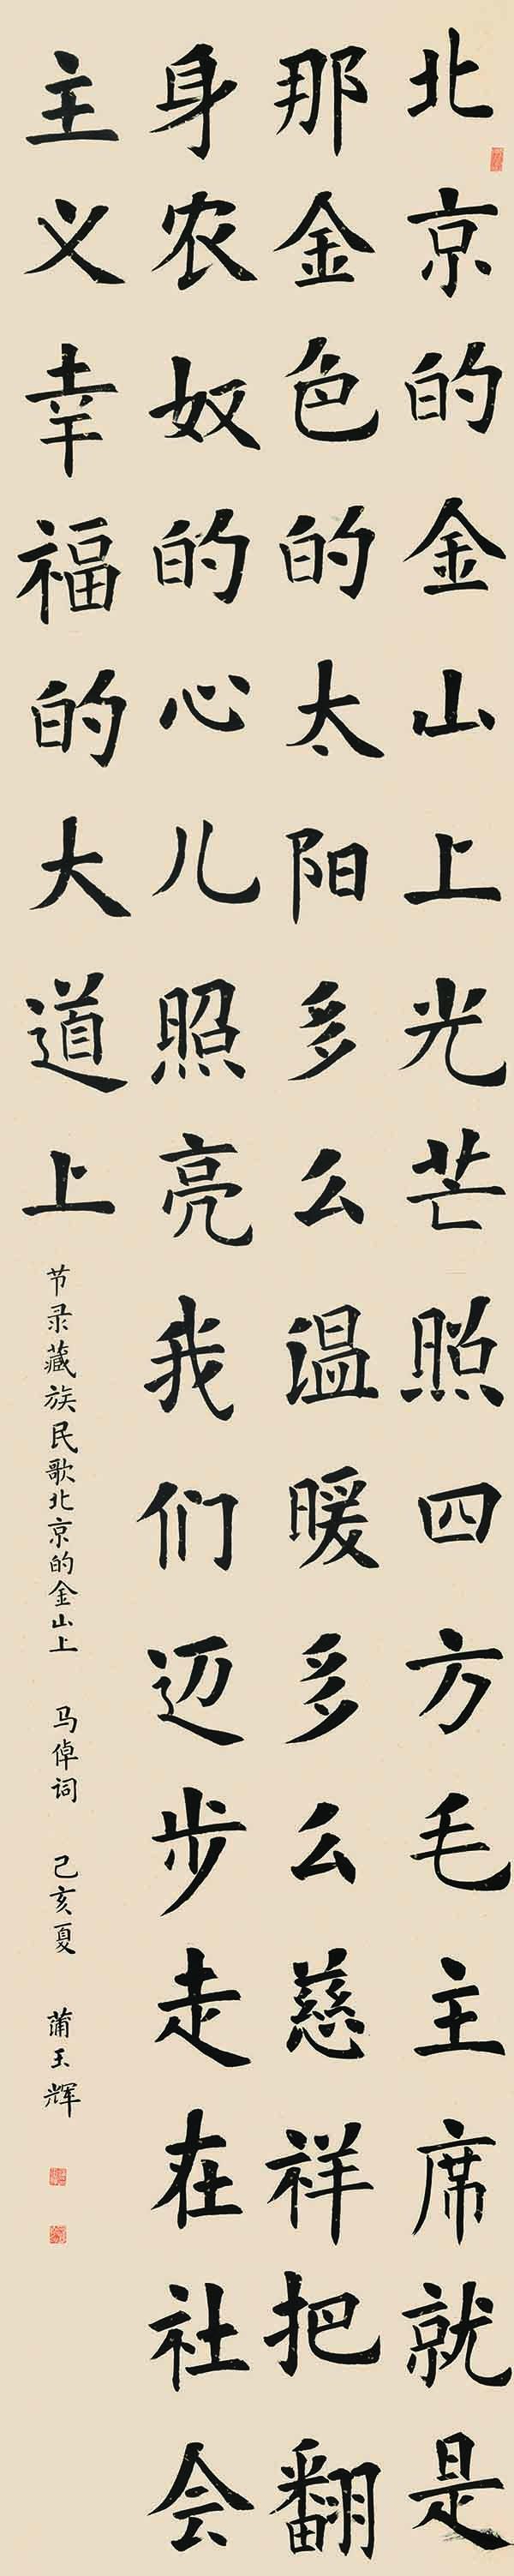 北京的金山上光芒照四方毛主席就是
那金色的太阳多么温暖多么慈祥把翻
身农奴的心儿照亮我们迈步走在社会
主义幸福的大道上
节录藏族民歌北京的金山上 马倬词 己亥夏 蒲玉辉